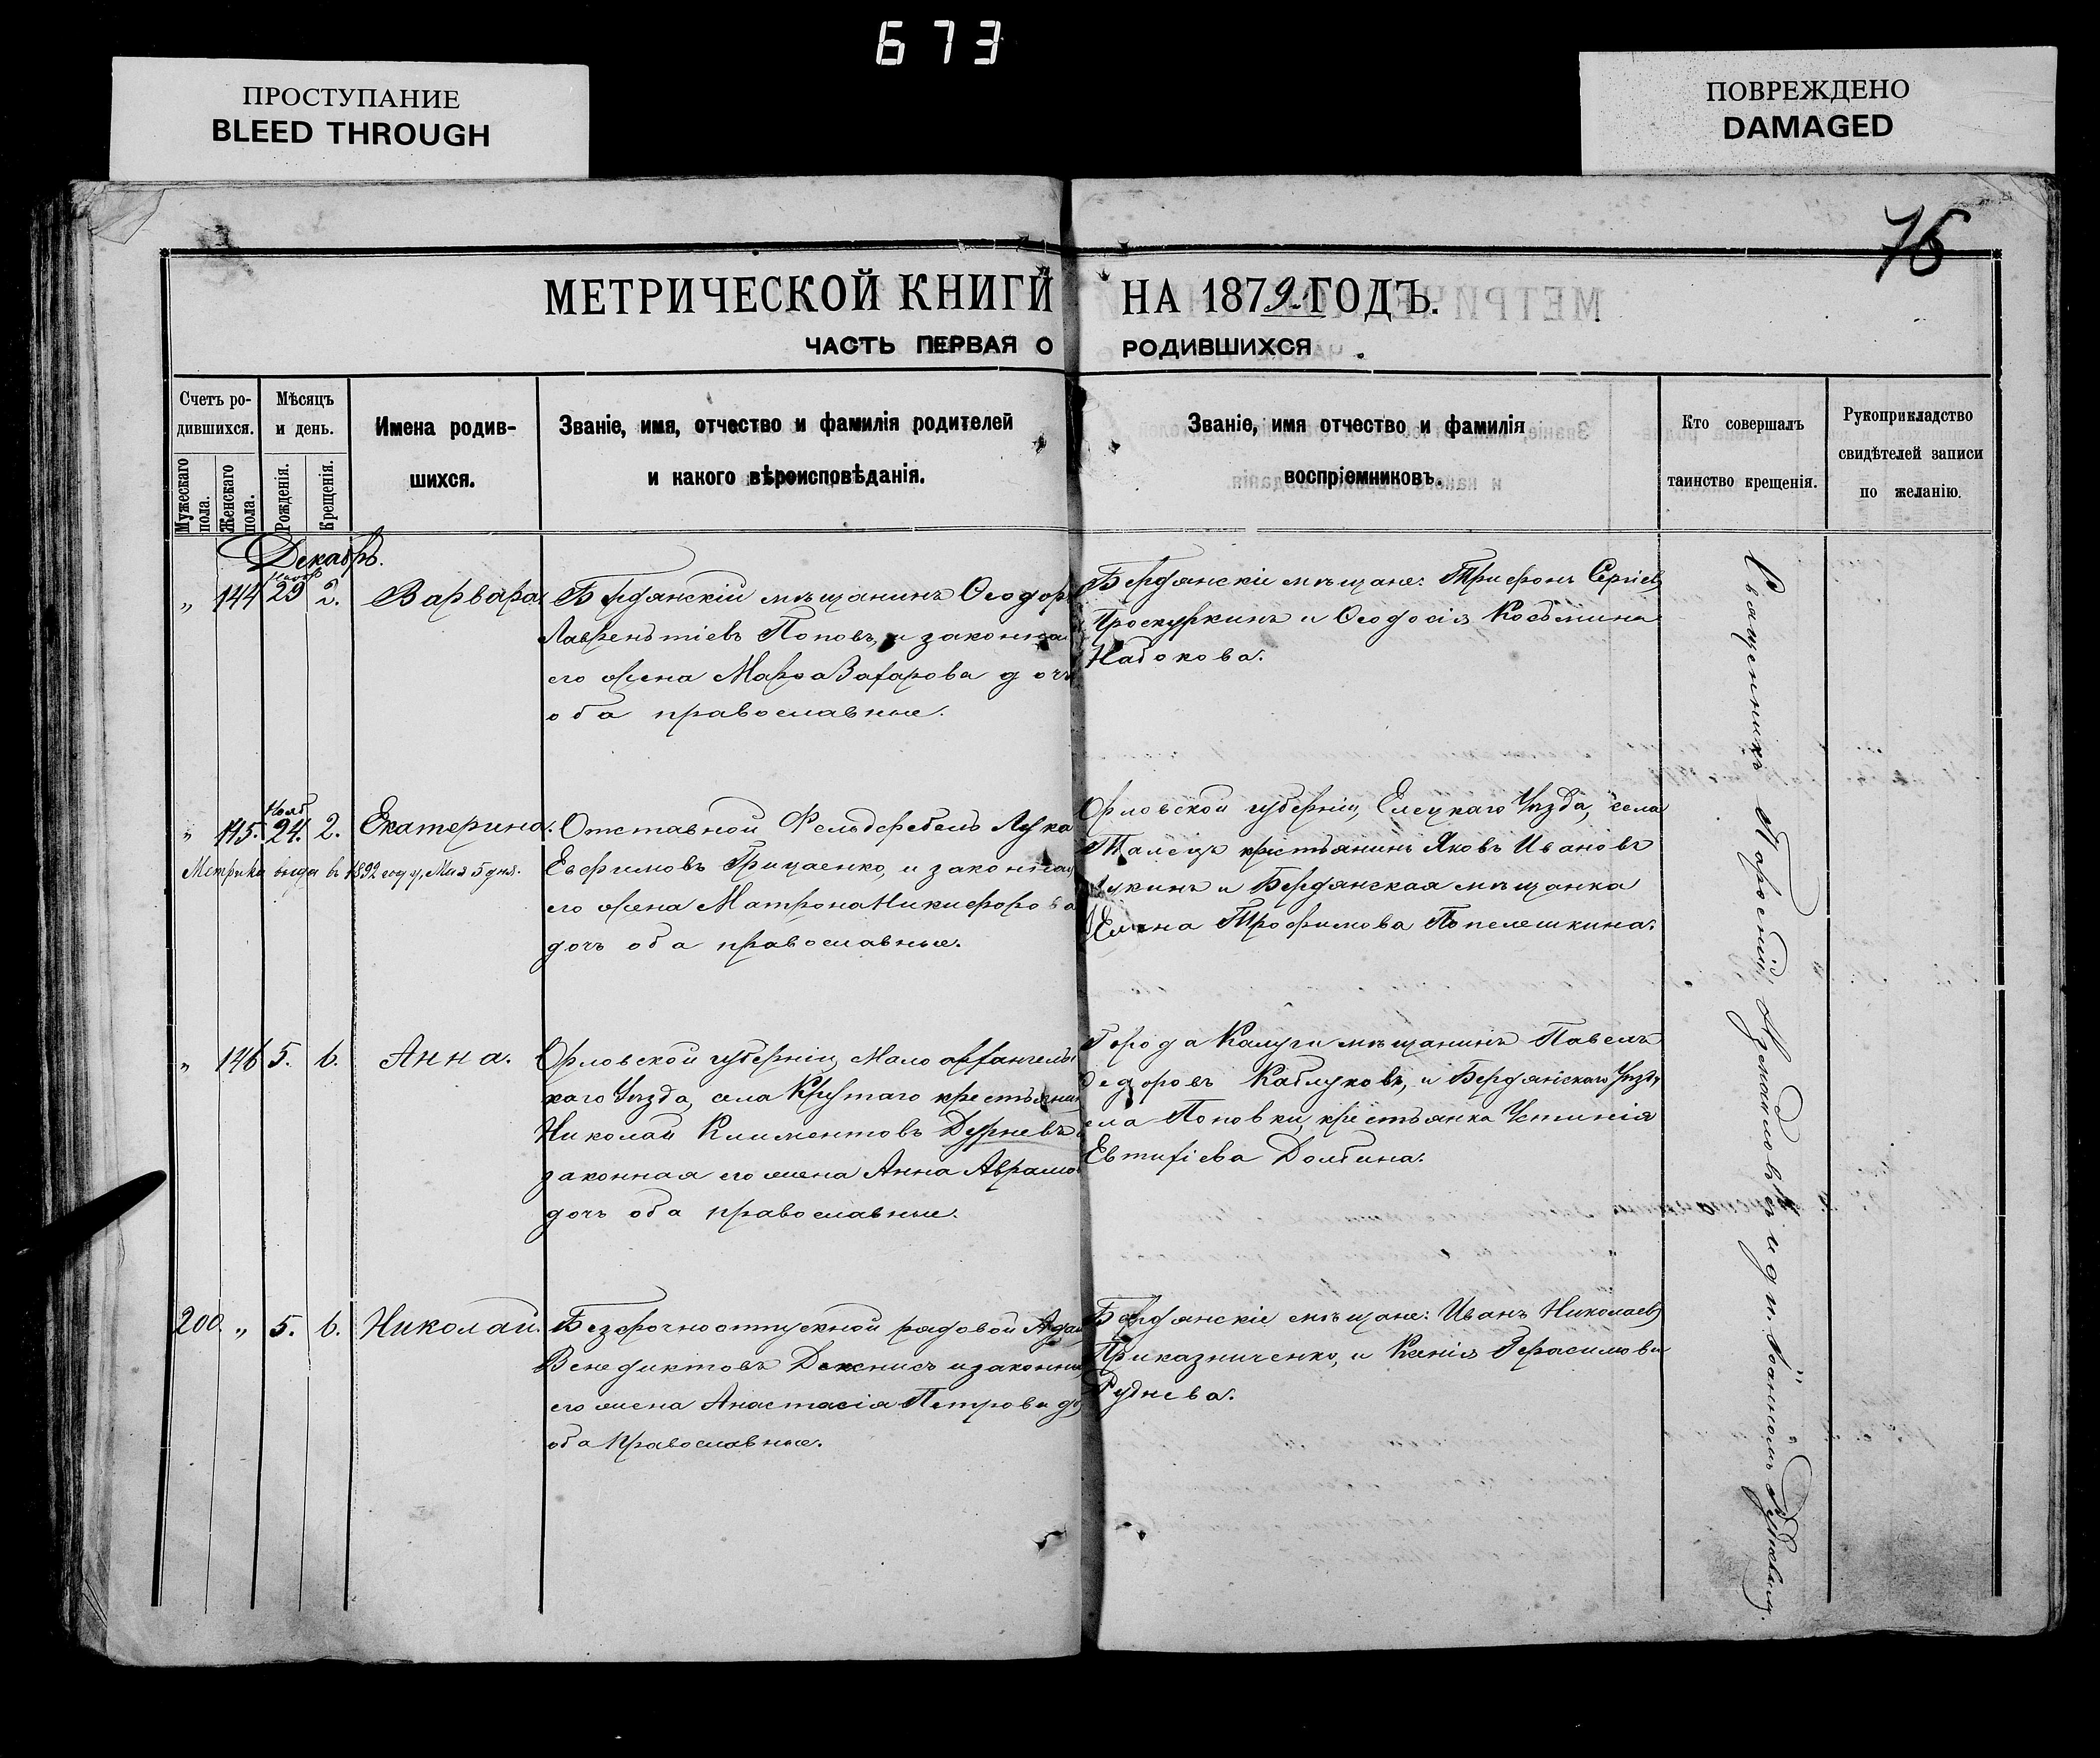 673
ПРОСТУПАНИЕ
BLEED THROUGH
ПОВРЕЖДЕНО
DAMAGED
76
МЕТРИЧЕСКОЙ КНИГИ НА 1879 ГОДЪ.
ЧАСТЬ ПЕРВАЯ О РОДИВШИХСЯ.
Счетъ ро-
дившихся.
Мужескаго пола.
Женскаго пола.
Мѣсяцъ
и день.
Рожденія.
Крещенія.
Имена родив-
шихся.
Званіе, имя, отчество и фамилія родителей
и какого вѣроисповѣданія.
Званіе, имя отчество и фамилія
воспріемниковъ.
Кто совершалъ
таинство крещенія.
Рукоприкладство
свидѣтелей записи
по желанію.
Декабрь.
„ 144 Нояб 29 2. Варвара.
Бердянскій мѣщанинъ Ѳеодоръ
Лаврентіевъ Поповъ, и законная
его жена Марѳа Захарова дочь
оба православные.
Бердянскіе мѣщане: Трифонъ Сергіевъ
Проскуркинъ и Ѳеодосія Косьмина
Набокова.
„ 145. Нояб 24. 2. Екатерина.
Метрика выдан въ 1892 году, Мая 5 дня.
Отставной Фельдфебель Лука
Евфимовъ Грицаенко, и законная
его жена Матрона Никифорова
дочь оба православные.
Орловской губерніи, Елецкаго Уѣзда, села
Талецъ крестьянинъ Яковъ Ивановъ
и Бердянская мѣщанка
Елена Трофимова Попелешкина.
„ 146 5. 6. Анна.
Орловской губерніи Малоархангельс
каго Уѣзда, села Крутаго крестьянин
Николай Климентовъ Дурневъ
законная его жена Анна Аврамо
дочь оба православные.
Города Калуги мѣщанинъ Павелъ
Ѳедоровъ Каблуковъ, и Бердянскаго Уѣзда
села Поповки, крестьянка Устинія
Евтихіева Долбина.
200. „ 5. 6. Николай.
Безсрочноотпускной рядовой Адам
Венедиктовъ и законная
его жена Анастасія Петрова до
оба православные.
Бердянскіе мѣщане: Иванъ Николаевъ
Приказниченко, и Ксенія Герасимова
Руднева.
Священникъ Парѳеній и д. Іоанномъ